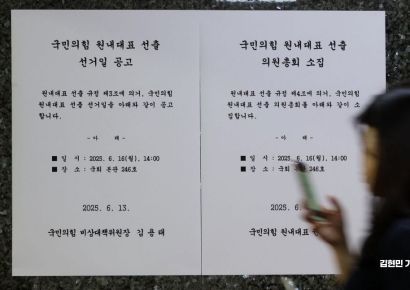 국민의힘 원내대표 선출
선거일 공고
원내대표 선출 규정 제3조에 의거, 국민의힘
원내대표 선출 선거일을 아래와 같이 공고
합니다.
- 아 래 -
■ 일 시 : 2025. 6. 16(월), 14:00
■ 장 소 : 국회 본관 246호
2025. 6. 13.
국민의힘 비상대책위원장 김용태
국민의힘 원내대표 선출
의원총회 소집
원내대표 선출 규정 제4조에 의거, 국민의힘
원내대표 선출 의원총회를 아래와 같이 소
집합니다.
- 아 래 -
■ 일 시 : 2025. 6. 16(월), 14:00
■ 장 소 : 국회 본관 246호
2025. 6.
국민의힘 원내대표
김현민 기